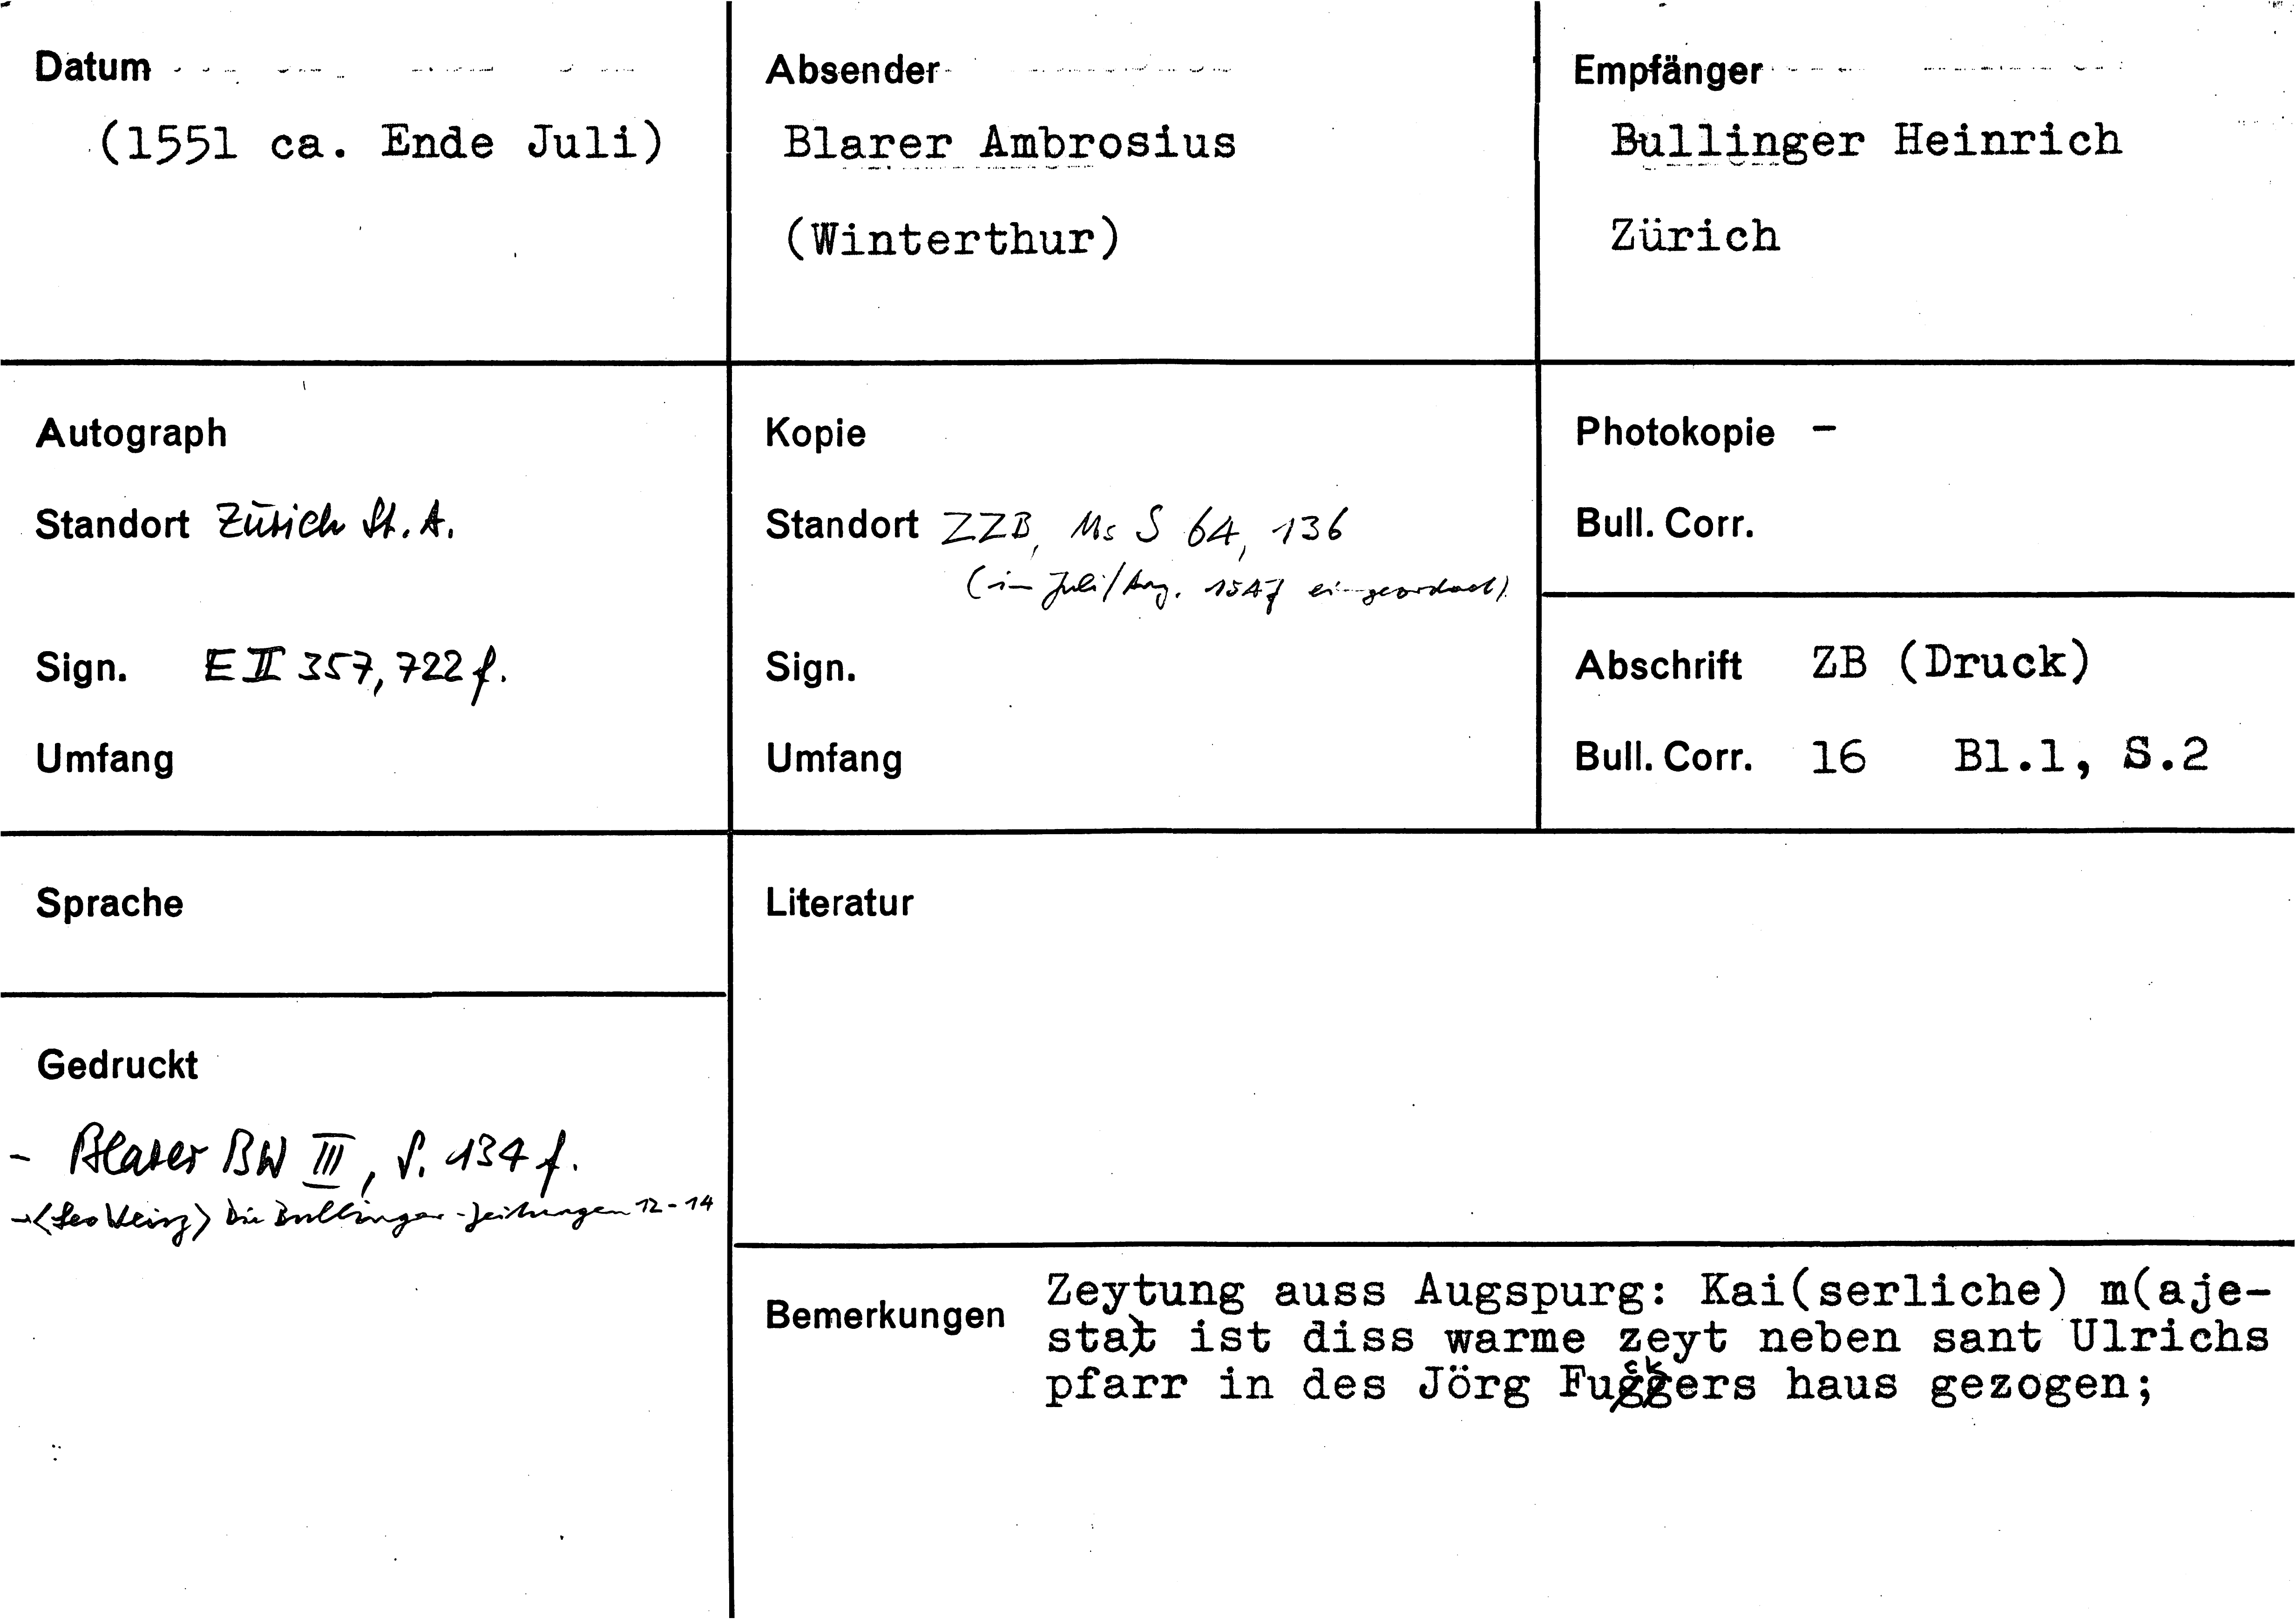 Datum
(1551 ca. Ende Juli)
Absender
Blarer Ambrosius
(Winterthur)
Empfänger
Bullinger Heinrich
Zürich
Autograph
Standort Zürich St. A.
Sign. E II 357, 722 f.
Umfang
Kopie
Standort ZZB, Ms S 64, 136
(im Juli/Aug. 1547 eingeordnet)
Sign.
Umfang
Photokopie -
Bull. Corr.
Abschrift ZB (Druck)
Bull. Corr. 16 Bl.1, S.2
Sprache
Gedruckt
- Blarer BW III, S. 134 f.
- <Leo Weisz> Die Bullinger-Zeitungen 12-14
Literatur
Bemerkungen
Zeytung auss Augspurg: Kai(serliche) m(aje-
sta)t ist diss warme zeyt neben sant Ulrichs
pfarr in des Jörg Fuckers haus gezogen;